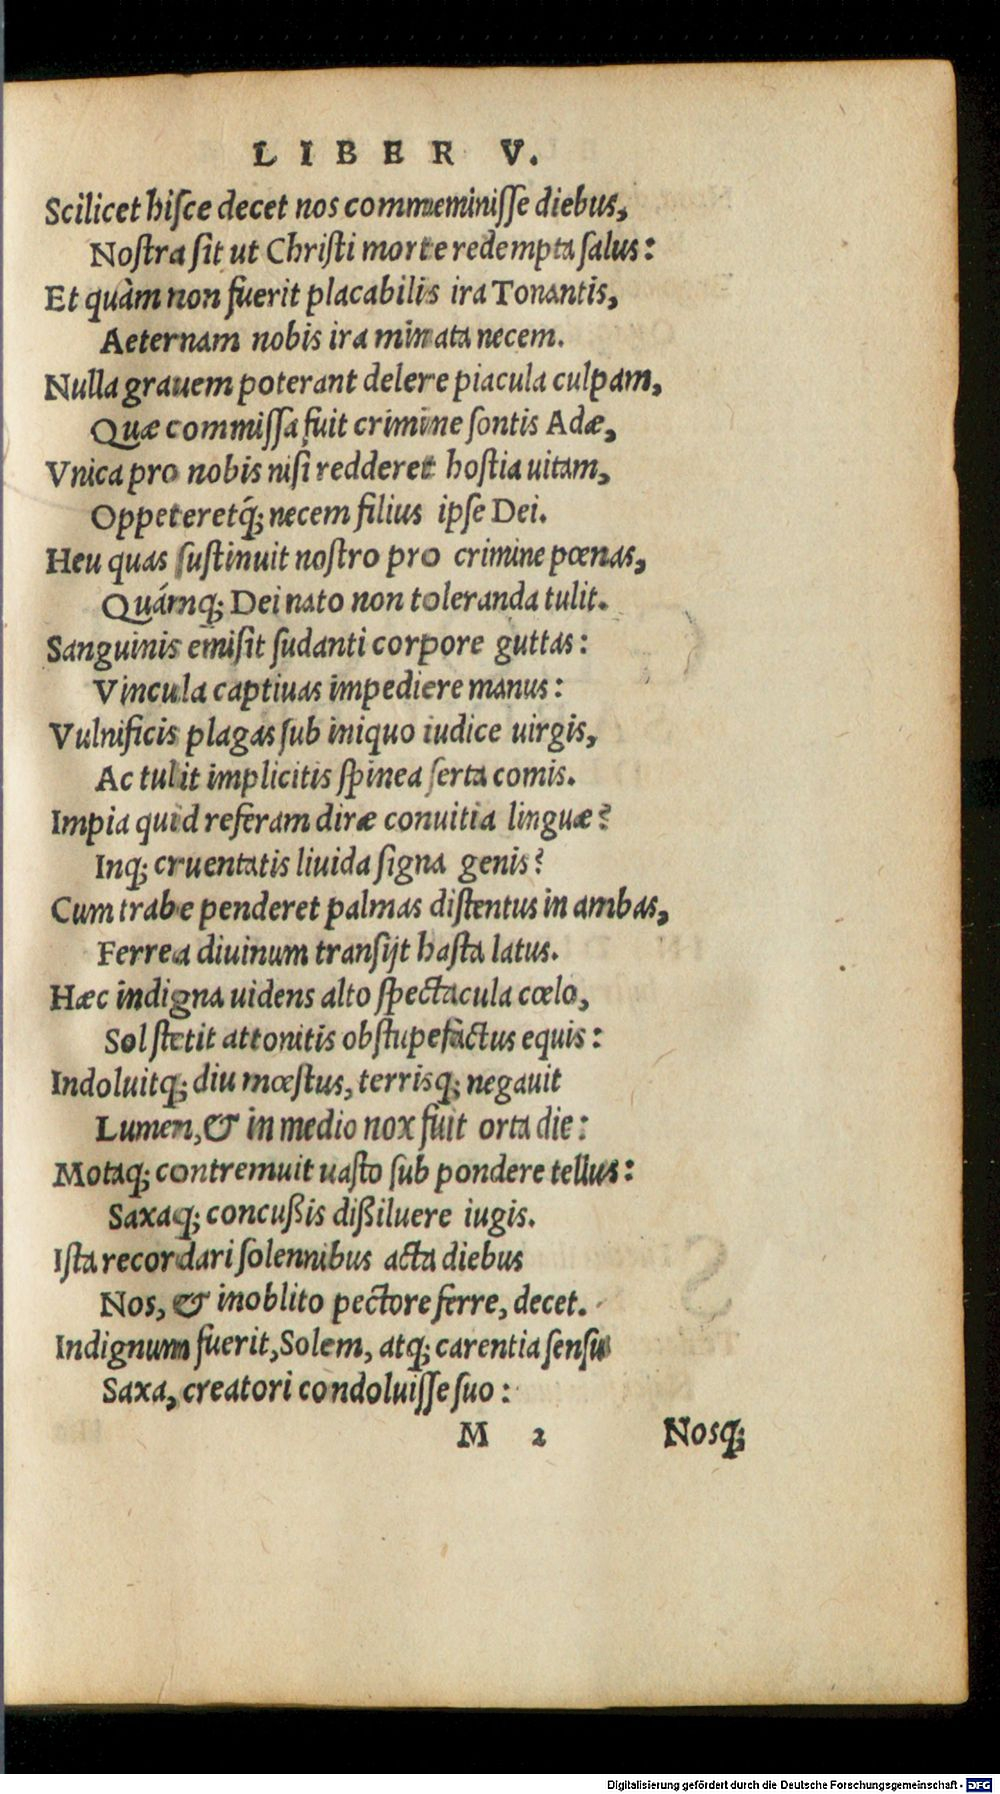 LIBER V.
Scilicet hiſce decet nos commeminiſſe diebus,
Noſtra ſit ut Chriſti morte redempta ſalus:
Et quàm non fuerit placabilis ira Tonantis,
Aeternam nobis ira minata necem.
Nulla grauem poterant delere piacula culpam,
Quæ commiſſa fuit crimine ſontis Adæ,
Vnica pro nobis niſi redderet hoſtia uitam,
Oppeteretq́; necem filius ipſe Dei.
Heu quas ſuſtinuit noſtro pro crimine pœnas,
Quámq; Dei nato non toleranda tulit.
Sanguinis emiſit ſudanti corpore guttas:
Vincula captiuas impediere manus:
Vulnificis plagas ſub iniquo iudice uirgis,
Ac tulit implicitis ſpinea ſerta comis.
Impia quid referam diræ conuitia linguæ?
Inq; cruentatis liuida ſigna genis?
Cum trabe penderet palmas diſtentus in ambas,
Ferrea diuinum tranſijt haſta latus.
Hæc indigna uidens alto ſpectacula cœlo,
Sol ſtetit attonitis obſtupefactus equis:
Indoluitq; diu mœſtus, terrisq; negauit
Lumen, & in medio nox fuit orta die:
Motaq; contremuit uaſto ſub pondere tellus:
Saxaq; concußis dißiluere iugis.
Iſta recordari ſolennibus acta diebus
Nos, & inoblito pectore ferre, decet.
Indignum fuerit, Solem, atq; carentia ſenſu
Saxa, creatori condoluiſſe ſuo:
M 2 Nosq;
Digitalisierung gefördert durch die Deutsche Forschungsgemeinschaft - DFG